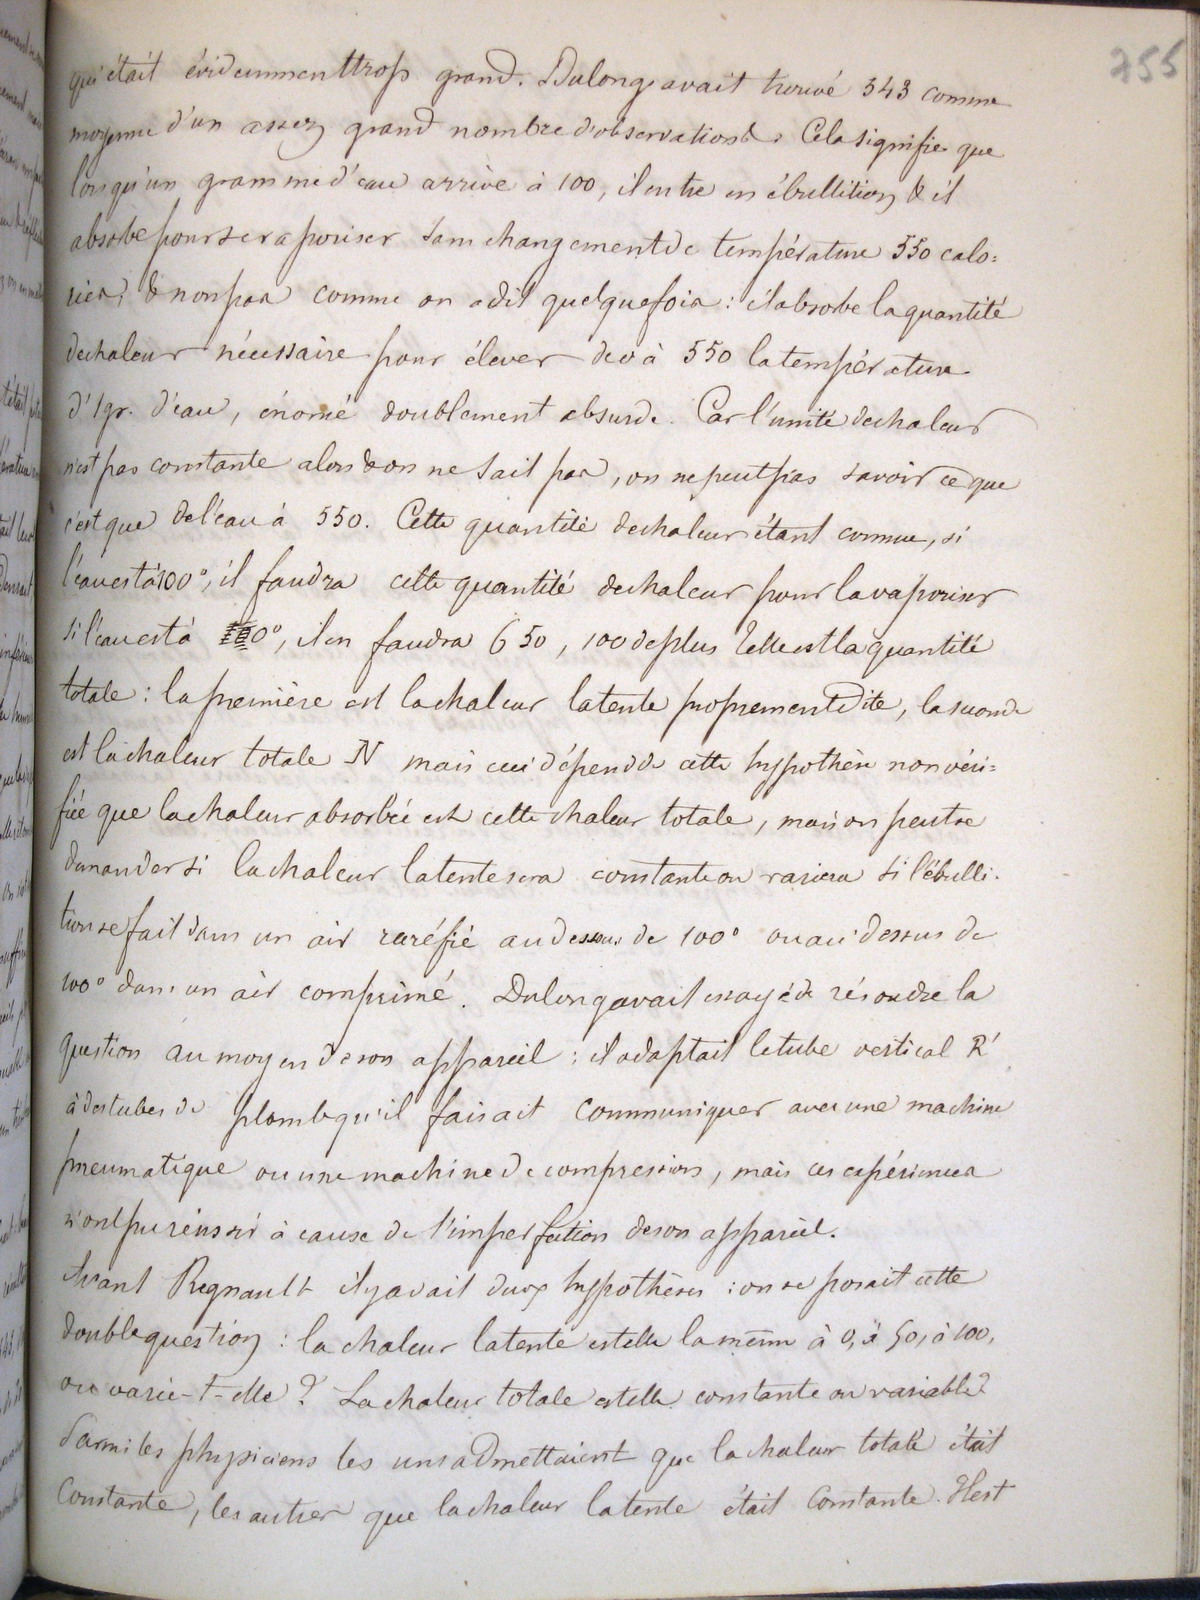 755
qui était évidemment trop grand. Dulong avait trouvé 543 comme
moyenne d'un assez grand nombre d'observations. Cela signifie que
lorsqu'un gramme d'eau arrive à 100, il entre en ébullition & il
absorbe pour se vaporiser sans changement de température 550 calo=
ries, & non pas comme on a dit quelquefois : il absorbe la quantité
de chaleur nécessaire pour élever de 0 à 550 la température
d'1 gr. d'eau, énoncé doublement absurde. Car l'unité de chaleur
n'est pas constante alors & on ne sait pas, on ne peut pas savoir ce que
c'est que de l'eau à 550. Cette quantité de chaleur étant connue, si
l'eau est à 100°, il faudra cette quantité de chaleur pour la vaporiser
si l'eau est à 0°, il en faudra 650, 100 de plus Telle est la quantité
totale : la première est la chaleur latente proprement dite, la seconde
est la chaleur totale N mais ceci dépend de cette hypothèse non véri=
fiée que la chaleur absorbée est cette chaleur totale, mais on peut se
demander si la chaleur latente sera constante ou variera si l'ébulli-
tion se fait dans un air raréfié au dessous de 100° ou au dessus de
100° dans un air comprimé. Dulong avait essayé de résoudre la
question au moyen de son appareil : il adaptait le tube vertical R'
à des tubes de plomb qu'il faisait communiquer avec une machine
pneumatique ou une machine de compression, mais ces expériences
n'ont pu réussir à cause de l'imperfection de son appareil.
Avant Regnault il y avait deux hypothèses : on se posait cette
double question : la chaleur latente est elle la même à 0, à 50, à 100,
ou varie-t-elle ? La chaleur totale est elle constante ou variable ?
Parmi les physiciens les uns admettaient que la chaleur totale était
Constante, les autres que la chaleur latente était Constante. Il est